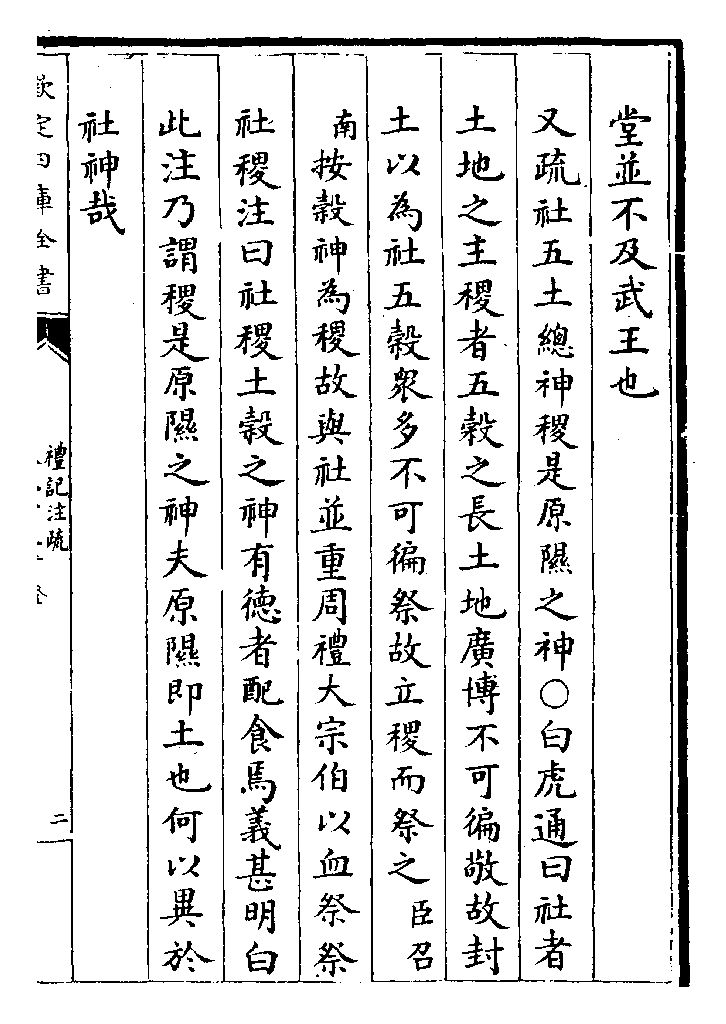 堂並不及武王也
又疏社五土總神稷是原隰之神○白虎通曰社者
土地之主稷者五穀之長土地廣博不可徧敬故封
土以為社五穀衆多不可徧祭故立稷而祭之臣召
南按穀神為稷故與社並重周禮大宗伯以血祭祭
社稷注曰社稷土穀之神有德者配食焉義甚明白
此注乃謂稷是原隰之神夫原隰即土也何以異於
社神哉
欽定四庫全書
禮記注疏
二